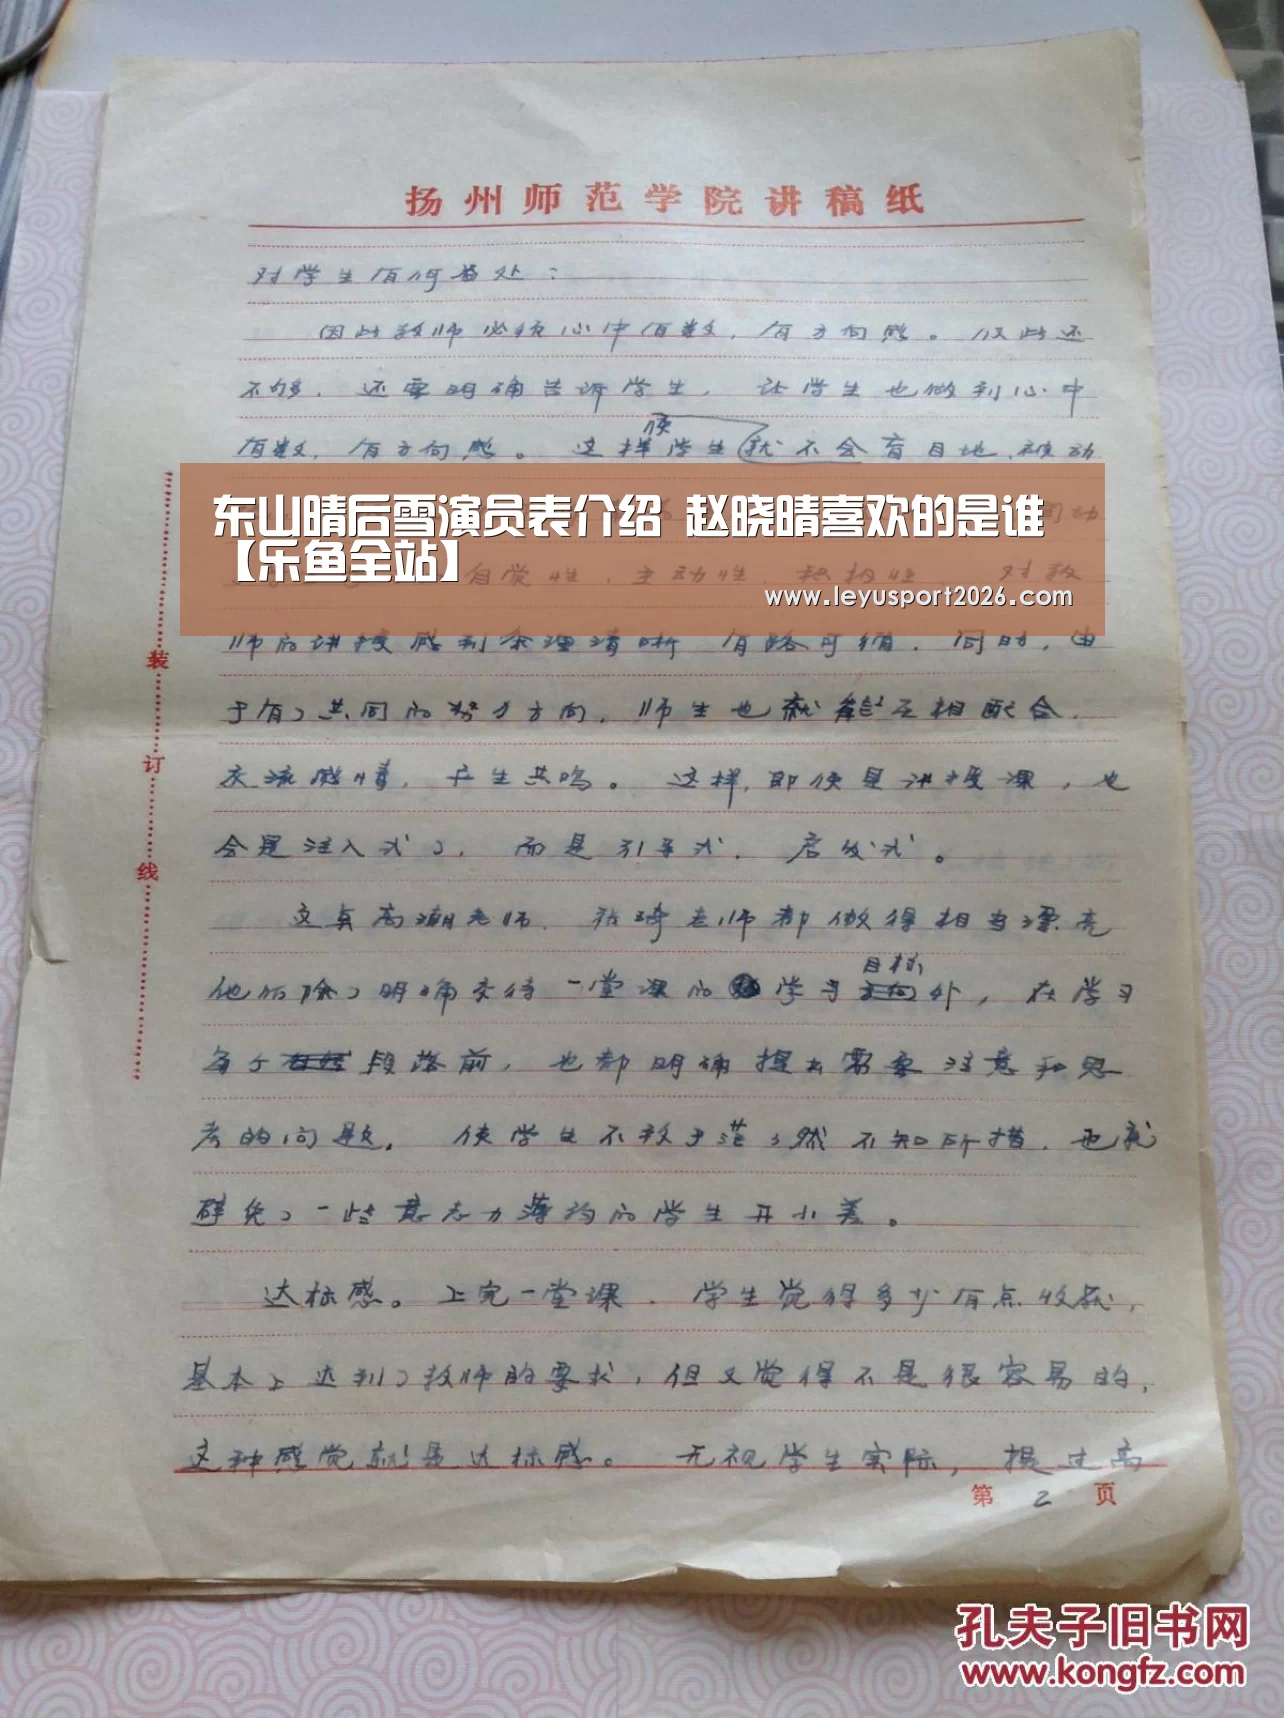 扬州师范学院讲稿纸
对学生有何益处：
因此教师必须心中有数，有方向感。仅此还
不够，还要明确告诉学生，让学生也做到心中
使
有数，有方向感。这样学生就不会盲目地、被动
东山晴后雪演员表介绍 赵晓晴喜欢的是谁
【乐鱼全站】
自觉性、主动性、积极性 对教
www.leyusport2026.com
师的讲授感到条理清晰 有路可循。同时，由
装
于有了共同的努力方向，师生也就能互相配合，
订
交流感情，产生共鸣。这样，即使是讲授课，也
会是注入式了，而是引导式、启发式。
线
高潮老师、老师都做得相当漂亮
目标
他们除了明确交待一堂课的学习外，在学习
每个段落前，也都明确提出需要注意和思
考的问题，使学生不致于茫然不知所措，也就
避免了一些意志力薄弱的学生开小差。
达标感。上完一堂课，学生觉得多少有点收获，
基本上达到了教师的要求，但又觉得不是很容易的，
这种感觉就是达标感。无视学生实际，提过高
第 2 页
孔夫子旧书网
www.kongfz.com